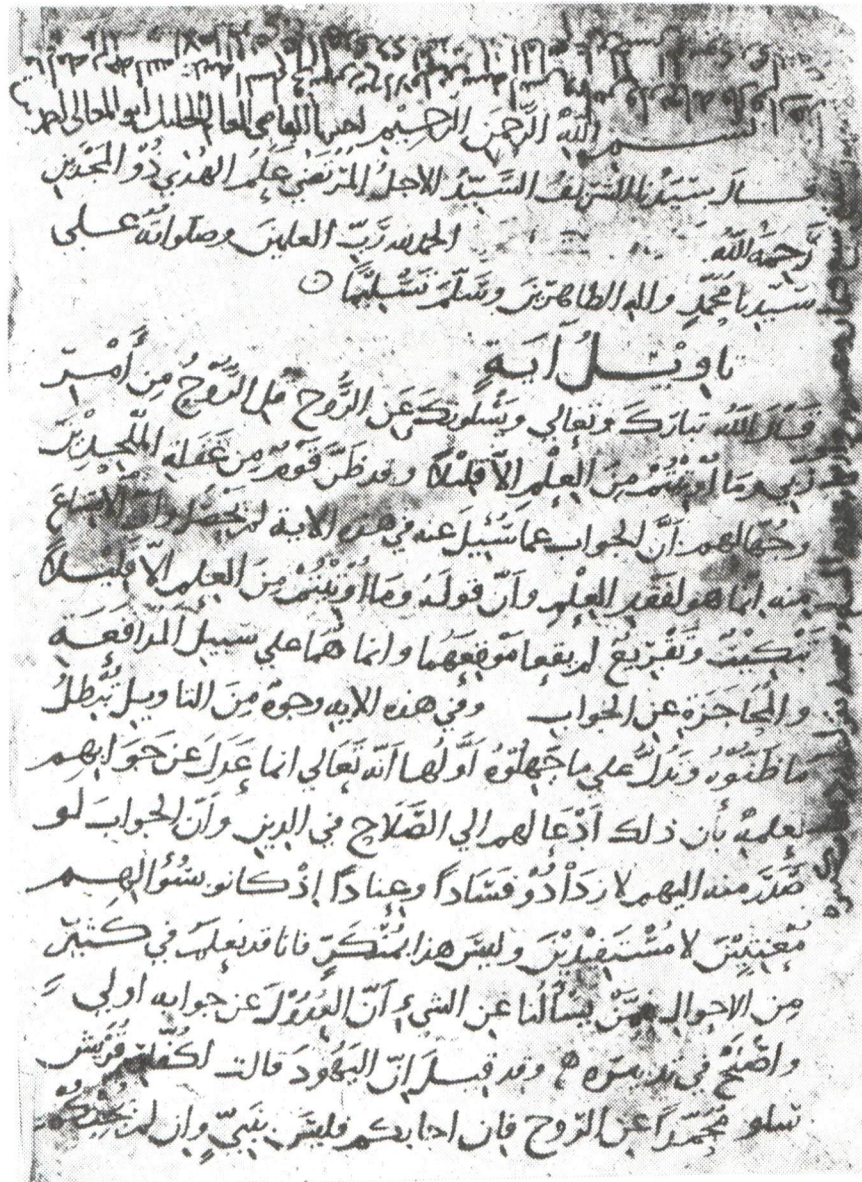 بسم الله الرحمن الرحيم
قال سيدنا الشريف السيد الاجل المرتضي علم الهدي ذو المجدين
رحمه الله الحمد لله رب العلمين وصلواته علي
سيدنا محمد واله الطاهرين وسلم تسليما
تاويل آية
قال الله تبارك وتعالي ويسلونك عن الروح قل الروح من أمر
ربي وما أوتيتم من العلم الا قليلا وقد ظن قوم من غفلة الملحدين
وجهالهم أن الجواب عما سئيل عنه في هذه الاية لم يحصل وان الامتناع
منه انما هو لفقد العلم وأن قوله وما أوتيتم من العلم الا قليلا
تبكيت وتقريع لم يقعا موقعهما وانما هما علي سبيل المدافعة
والمحاجزة عن الجواب وفي هذه الايه وجوه من التاويل تبطل
ما ظنوه وتدل علي ما جهلوه أولها أنه تعالي انما عدل عن جوابهم
لعلمه بأن ذلك أدعا لهم الي الصلاح في الدين وأن الجواب لو
صدر منه اليهم لازدادو فسادا وعنادا إذ كانو بسؤالهم
معنتين لا مستفيدين وليس هذا بمنكر فانا قد نعلم في كثير
من الاحوال ممن يسألنا عن الشيء أن العدول عن جوابه اولي
وأصلح في تدبيره وقد قيل إن اليهود قالت لكفار قريش
سلو محمدا عن الروح فان اجابكم فليس بنبي وان لم يجبكم